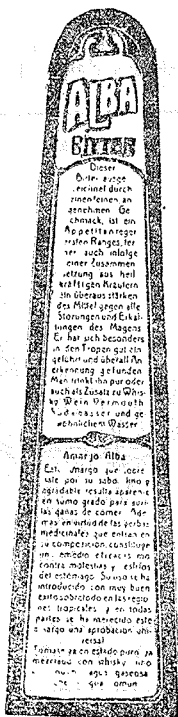 ALBA
BITTER
Dieser
Bitter ausge
zeichnet durch
einen feinen an
genehmen Ge
schmack, ist ein
Appetitanreger
ersten Ranges, fer
ner auch infolge
seiner Zusammen
setzung aus heil
kräftigen Kräutern
ein überaus stärken
des Mittel gegen alle
Störungen und Erkäl
tungen des Magens
Er hat sich besonders
in den Tropen gut ein
geführt und überall An
erkennung gefunden
Man trinkt ihn pur oder
auch als Zusatz zu Whis
ky Wein Vermouth
Sodawasser und ge
wöhnlichem Wasser
Amargo Alba
Este amargo que sobre
sale por su sabor fino y
agradable resulta aparente
en sumo grado para abrir
las ganas de comer Ade
mas en virtud de las yerbas
medicinales que entran en
su composicion, constituye
un remedio eficacisimo
contra molestias y resfrios
del estómago. Su uso se ha
introducido con muy buen
exito sobretodo en las regio
nes tropicales y en todas
partes se ha merecido este
amargo una aprobacion uni
versal
Tomase ya en estado puro, ya
mezclado con whisky vino
agua gaseosa
agua comun